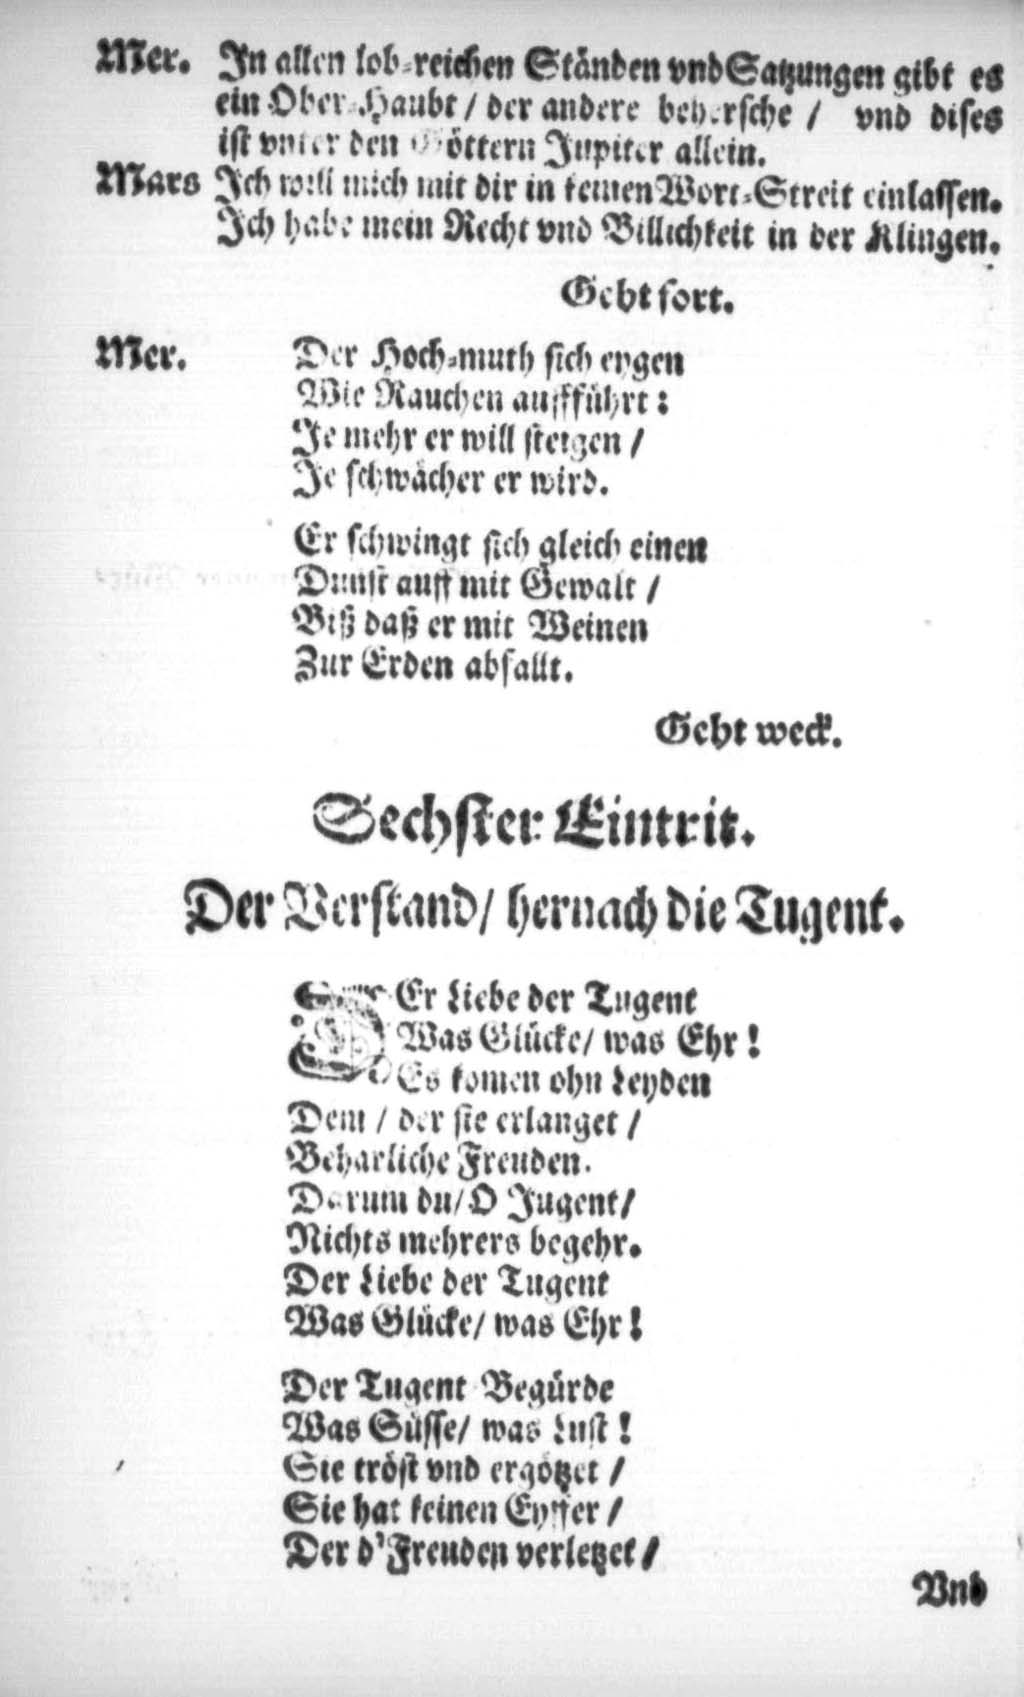 Mer. In allen lob-reichen Ständen vnd Satzungen gibt es
ein Ober-Haubt / der andere behersche / vnd dises
ist vnter den Göttern Jupiter allein.
Mars Ich will mich mit dir in keinen Wort-Streit einlassen.
Ich habe mein Recht vnd Billichkeit in der Klingen.
Geht fort.
Mer. Der Hoch-muth sich eygen
Wie Rauchen auffführt:
Je mehr er will steigen /
Je schwächer er wird.
Er schwingt sich gleich einen
Dunst auff mit Gewalt /
Biß daß er mit Weinen
Zur Erden abfallt.
Geht weck.
Sechster Eintrit.
Der Verstand / hernach die Tugent.
DEr Liebe der Tugent
Was Glücke / was Ehr!
Es komen ohn Leyden
Dem / der sie erlanget /
Beharliche Freuden.
Darum du / O Jugent /
Nichts mehrers begehr.
Der Liebe der Tugent
Was Glücke / was Ehr!
Der Tugent Begürde
Was Süsse / was Lust!
Sie tröst vnd ergötzet /
Sie hat keinen Eyffer /
Der d'Freuden verletzet /
Vnd